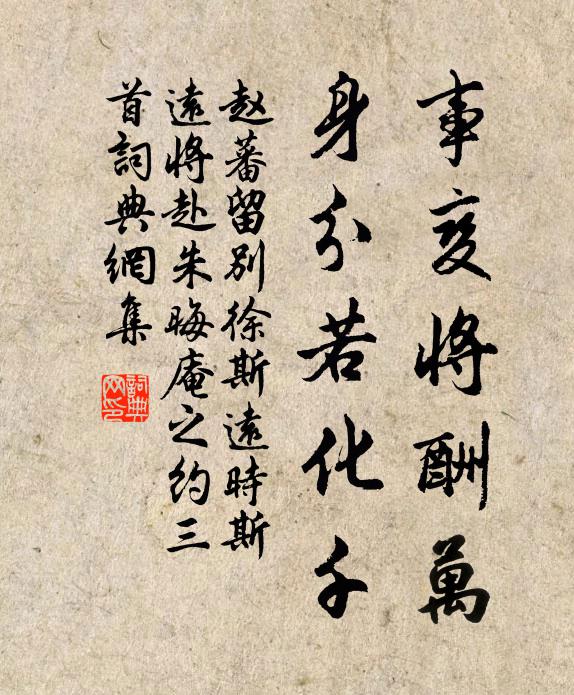 事变将酬萬
身分若化千
赵蕃留别徐斯遠時斯
遠将赴朱晦庵之约三
首詞典網集
詞典
网印